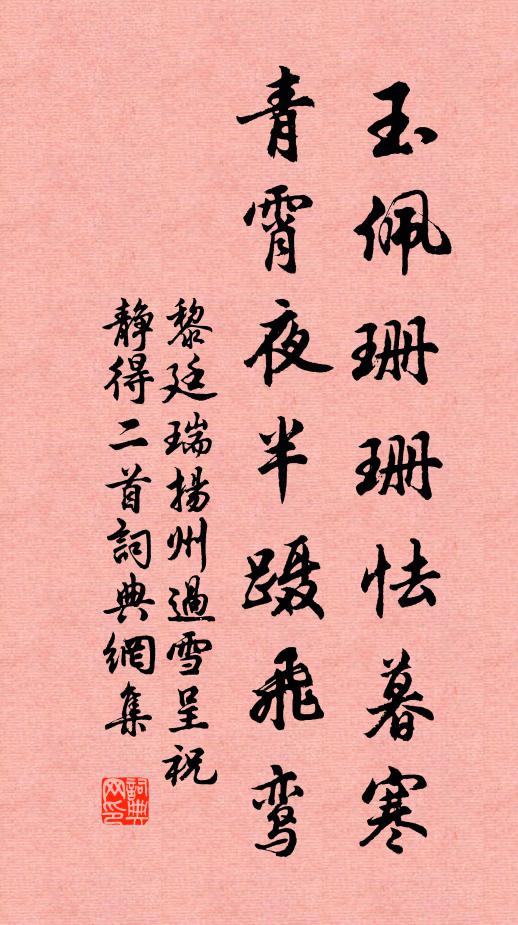 玉佩珊珊怯暮寒
青霄夜半蹑飛鸾
黎廷瑞揚州過雪呈祝
静得二首詞典網集
詞典
网印